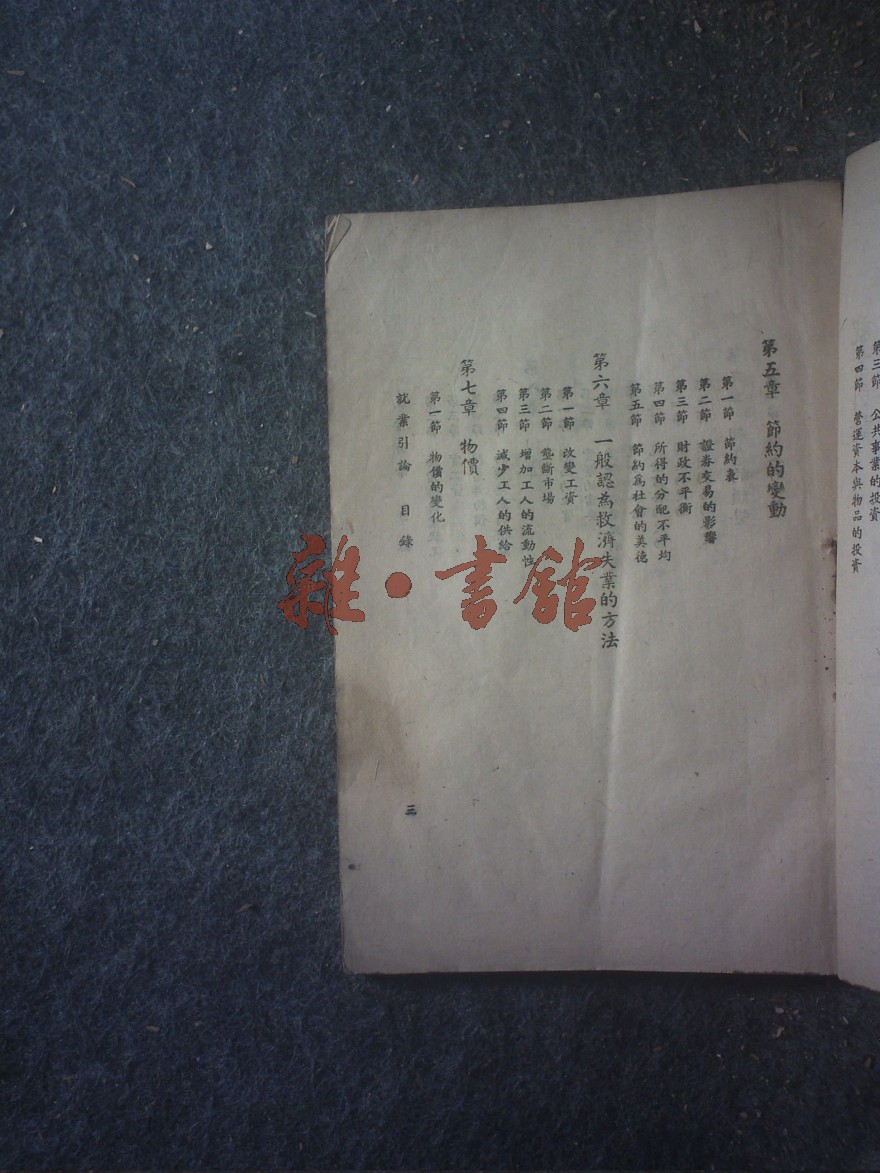 第三節　公共事業的投資
第四節　營運資本與物品的投資
第五章　節約的變動
第一節　節約衰
第二節　證券交易的影響
第三節　財政不平衡
第四節　所得的分配不平均
第五節　節約爲社會的美德
第六章　一般認爲救濟失業的方法
第一節　改變工資
第二節　壟斷市場
第三節　增加工人的流動性
第四節　減少工人的供給
第七章　物價
第一節　物價的變化
就業引論　目錄
三
雜·書館